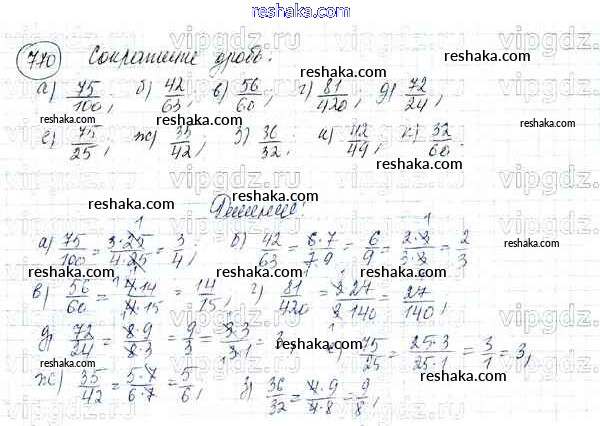 reshaka.com
770 Сократите дробь:
а) 75/100, б) 42/63, в) 56/60, г) 81/420, д) 72/24,
е) 75/25, ж) 35/42, з) 36/32; и) 42/49, к) 32/60.
Решение:
а) 75/100 = 3·25/4·25 = 3/4; б) 42/63 = 6·7/7·9 = 6/9 = 2·3/3·3 = 2/3
в) 56/60 = 4·14/4·15 = 14/15, г) 81/420 = 3·27/3·140 = 27/140,
д) 72/24 = 8·9/8·3 = 9/3 = 3·3/3·1 = 3, е) 75/25 = 25·3/25·1 = 3/1 = 3,
ж) 35/42 = 5·7/6·7 = 5/6, з) 36/32 = 4·9/4·8 = 9/8,